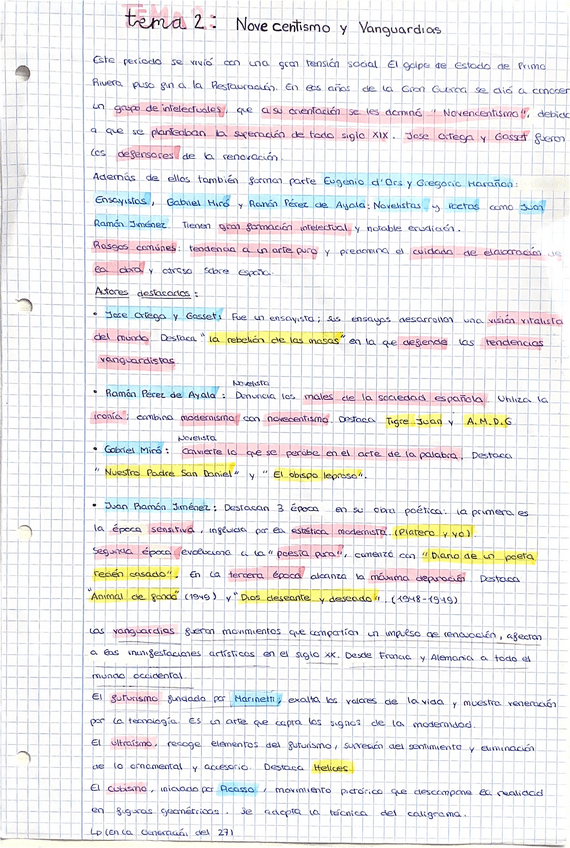 tema 2: Novecentismo y Vanguardias
Este periodo se vivió con una gran tensión social. El golpe de Estado de Primo
Rivera puso fin a la Restauración. En los años de la Gran Guerra se dió a conocer
un grupo de intelectuales, que a su orientación se les dominó "Novencentismo", debido
a que se planteaban la superación de todo siglo XIX. Jose Ortega y Gasset fueron
los defensores de la renovación.
Además de ellos también forman parte Eugenio d'Ors y Gregorio Marañon:
Ensayistas, Gabriel Miró y Ramón Pérez de Ayala: Novelistas y poetas como Juan
Ramón Jiménez. Tienen gran formación intelectual y notable erudición.
Rasgos comúnes: tendencia a un arte puro y predomina el cuidado de elaboración de
la obra y sobre España.
Autores destacados:
• Jose Ortega y Gasset: Fue un ensayista; sus ensayos desarrollan una visión vitalista
del mundo. Destaca "la rebelión de las masas" en la que defiende las tendencias
vanguardistas
Novelista
• Ramón Pérez de Ayala: Denuncia los males de la sociedad española. Utiliza la
ironía; combina modernismo con novecentismo. Destaca Tigre Juan y A.M.D.G
Novelista
• Gabriel Miró: Convierte lo que se percibe en el arte de la palabra. Destaca
"Nuestro Padre San Daniel" y "El obispo leproso".
• Juan Ramón Jiménez: Destacan 3 época en su obra poética: la primera es
la época sensitiva, influida por la estética modernista. (Platero y yo).
Segunda época evoluciona a la "poesía pura", comenzó con "Diario de un poeta
recién casado". En la tercera época alcanza la máxima depuración. Destaca
"Animal de fondo" (1949) y "Dios deseante y deseado". (1948-1949)
Las vanguardias fueron movimientos que compartían un impulso de renovación, afectan
a las manifestaciones artísticas en el siglo XX. Desde Francia y Alemania a todo el
mundo occidental.
El futurismo fundado por Marinetti, exalta los valores de la vida y muestra veneración
por la tecnología. Es un arte que capta los signos de la modernidad.
El ultraísmo, recoge elementos del futurismo, supresión del sentimiento y eliminación
de lo ornamental y accesorio. Destaca Helices
El cubismo, iniciado por Picasso, movimiento pictórico que descompone la realidad
en figuras geométricas. Se adopta la técnica del caligrama.
↳ (en la Generación del 27)